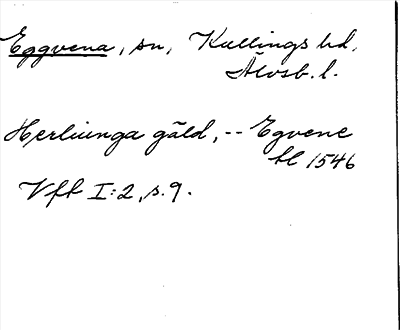 Eggvena, sn, Kullings hd,
Älvsb. l.
Herliunga gäld, -- Egvene
bl 1546
Vfk I:2, s. 9.